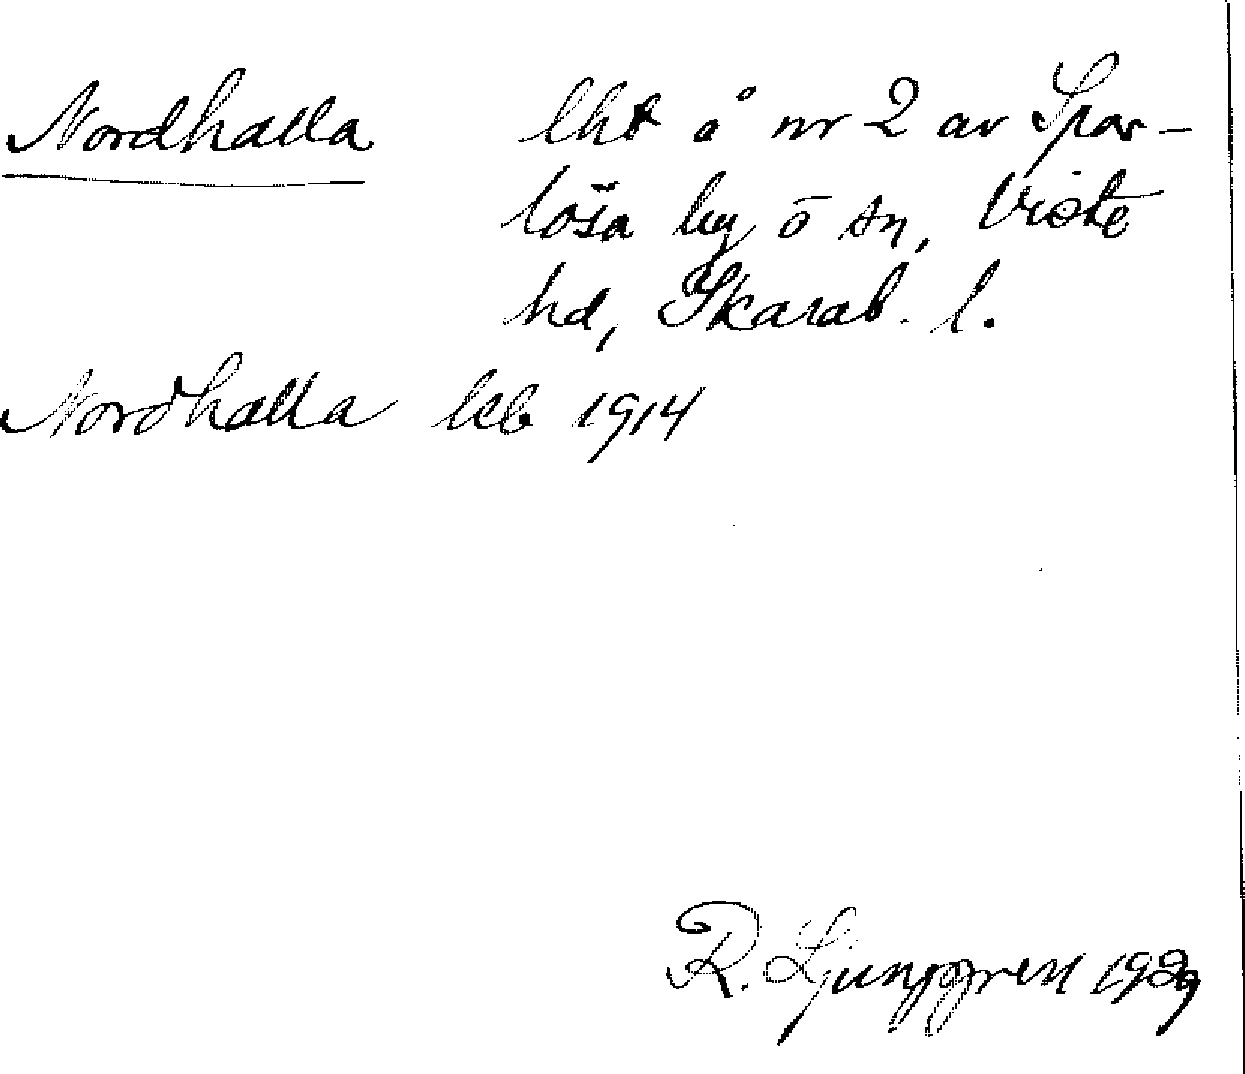 Nordhalla lht å nr 2 av Spar-
lösa by o sn, Viste
hd, Skarab. l.
Nordhalla kb 1914
R. Ljunggren 1929